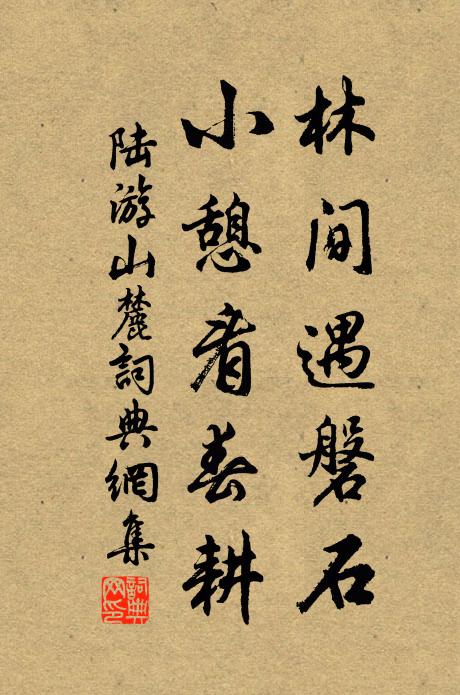 林间遇磐石
小憩看春耕
陆游山麓詞典網集
詞典网印